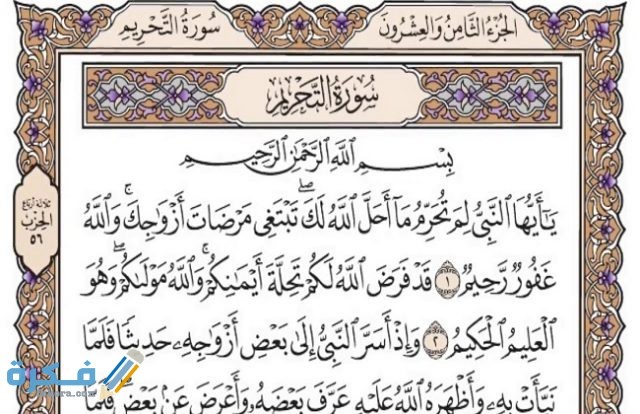 الجُزْءُ الثَّامِنُ وَالعِشْرُونَ
سُورَةُ التَّحْرِيمِ
سُورَةُ التَّحْرِيمِ
بِسْمِ اللَّهِ الرَّحْمَٰنِ الرَّحِيمِ
يَٰٓأَيُّهَا ٱلنَّبِيُّ لِمَ تُحَرِّمُ مَآ أَحَلَّ ٱللَّهُ لَكَۖ تَبْتَغِي مَرْضَاتَ أَزْوَٰجِكَۚ وَٱللَّهُ
غَفُورٞ رَّحِيمٞ ١ قَدْ فَرَضَ ٱللَّهُ لَكُمْ تَحِلَّةَ أَيْمَٰنِكُمْۚ وَٱللَّهُ مَوْلَىٰكُمْۖ وَهُوَ
ٱلْعَلِيمُ ٱلْحَكِيمُ ٢ وَإِذْ أَسَرَّ ٱلنَّبِيُّ إِلَىٰ بَعْضِ أَزْوَٰجِهِۦ حَدِيثٗا فَلَمَّا
نَبَّأَتْ بِهِۦ وَأَظْهَرَهُ ٱللَّهُ عَلَيْهِ عَرَّفَ بَعْضَهُۥ وَأَعْرَضَ عَنۢ بَعْضٖۖ فَلَمَّا
ثلاثة أرباع
الحِزْب
٥٦
فكرة